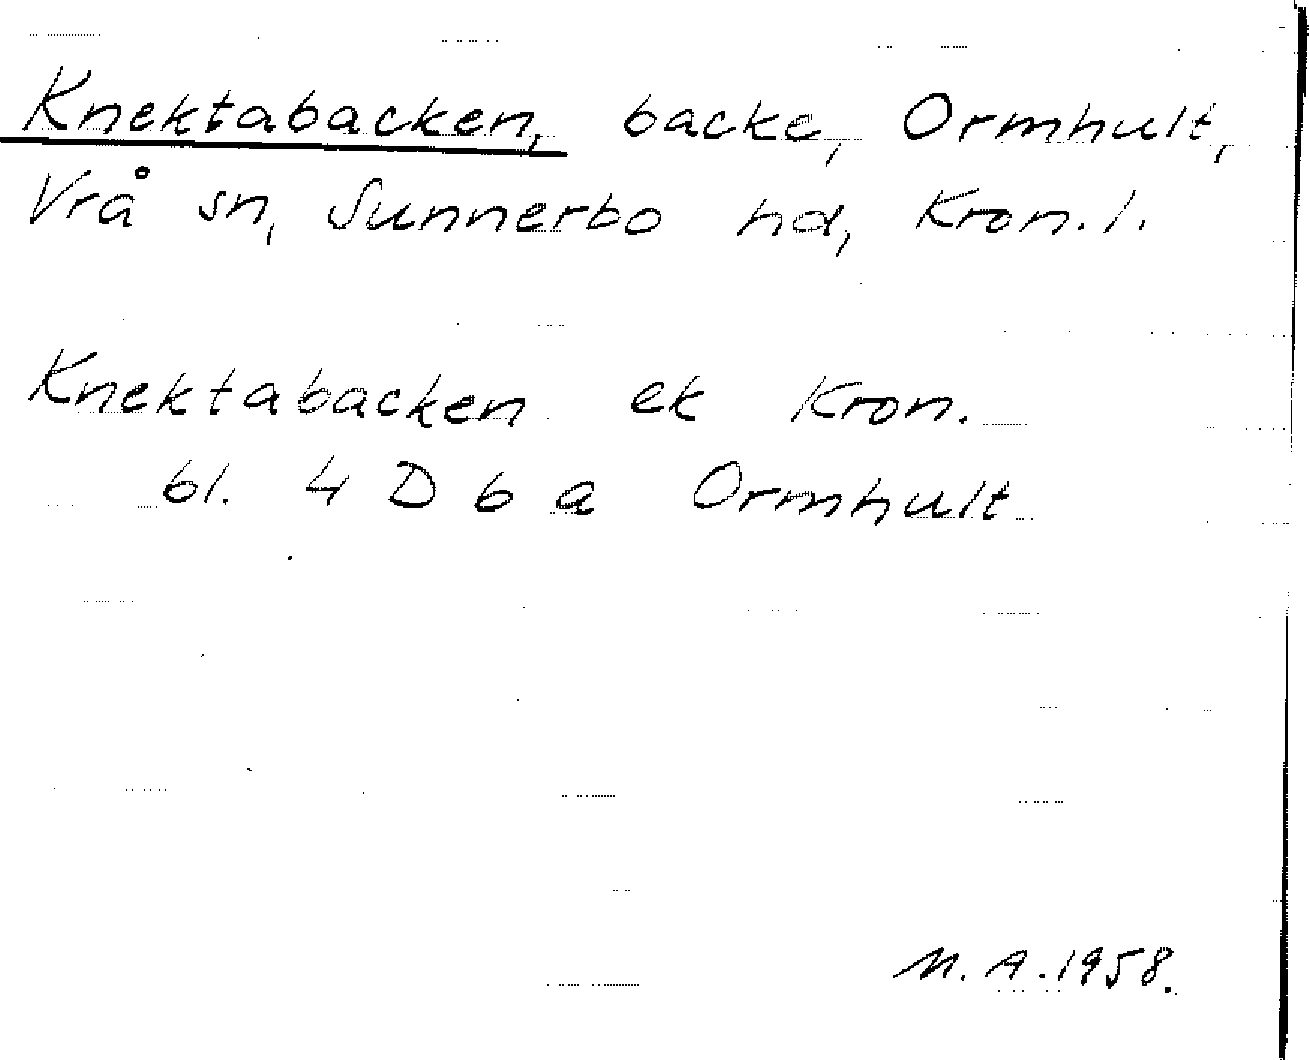 Knektabacken, backe, Ormhult,
Vrå sn, Sunnerbo hd, Kron. l.
Knektabacken ek Kron.
bl. 4 D 6 a Ormhult
M. A. 1958.